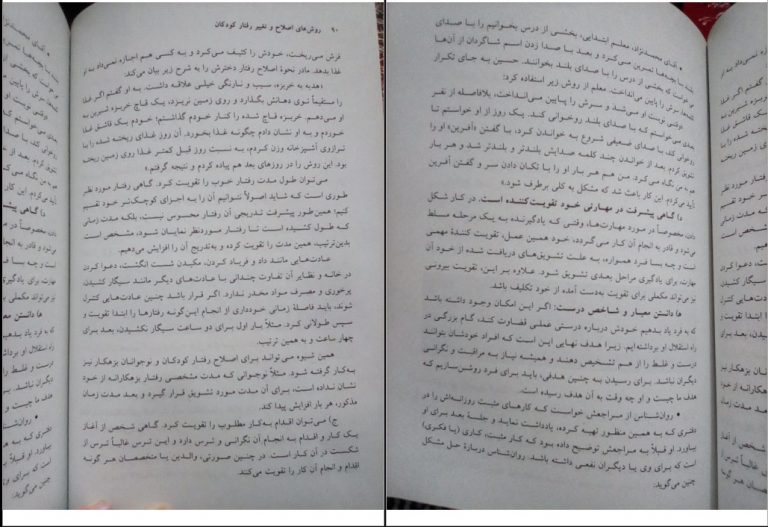 ۹۰ روش‌های اصلاح و تغییر رفتار کودکان
فرش می‌ریخت، خودش را کثیف می‌کرد و به کسی هم اجازه نمی‌داد به او
غذا بدهد. مادر نحوهٔ اصلاح رفتار دخترش را به شرح زیر بیان می‌کند:
«هدیه به خربزه، سیب و نارنگی خیلی علاقه داشت. به او گفتم اگر غذا
را مستقیماً توی دهانش بگذارد و روی زمین نریزد، یک قاچ خربزه شیرین به
او می‌دهم. خربزه قاچ شده را کنار خودم گذاشتم؛ خودم یک قاشق غذا
خوردم و به او نشان دادم چگونه غذا بخورد. آن روز غذای ریخته شده را با
ترازوی آشپزخانه وزن کردم، به نسبت روز قبل کمتر غذا روی زمین ریخته
بود. این روش را در روزهای بعد هم پیاده کردم و نتیجه گرفتم.»
می‌توان طول مدت رفتار خوب را تقویت کرد. گاهی رفتار مورد نظر
طوری است که شاید اصولاً نتوانیم آن را به اجزای کوچک‌تر خود تقسیم
کنیم؛ همین طور پیشرفت تدریجی آن رفتار محسوس نیست، بلکه مدت زمانی
که طول کشیده است تا رفتار موردنظر نمایان شود، مشخص است
بدین‌ترتیب، همین مدت را تقویت کرده و به‌تدریج آن را افزایش می‌دهیم.
عادت‌هایی مانند داد و فریاد کردن، مکیدن شست انگشت، دعوا کردن
در خانه و نظایر آن تفاوت چندانی با عادت‌های دیگر مانند سیگار کشیدن،
پرخوری و مصرف مواد مخدر ندارد. اگر قرار باشد چنین عادت‌هایی کنترل
شوند، باید فاصلهٔ زمانی خودداری از انجام این‌گونه رفتارها را ابتدا تقویت و
سپس طولانی کرد. مثلاً بار اول برای دو ساعت سیگار نکشیدن، بعد برای
چهار ساعت و به همین ترتیب.
همین شیوه می‌تواند برای اصلاح رفتار کودکان و نوجوانان بزهکار نیز
به‌کار گرفته شود. مثلاً نوجوانی که مدت مشخصی رفتار بزهکارانه از خود
نشان نداده است، برای آن مدت مورد تشویق قرار گیرد و بعد مدت زمان
مذکور، هر بار افزایش پیدا کند.
ج) می‌توان اقدام به‌کار مطلوب را تقویت کرد. گاهی شخص از آغاز
یک کار و اقدام به انجام آن نگرانی و ترس دارد و این ترس غالباً ترس از
شکست در آن کار است. در چنین صورتی، والدین یا متخصصان هر گونه
اقدام و انجام آن کار را تقویت می‌کنند.
• آقای محمدنژاد، معلم ابتدایی، بخشی از درس بخوانیم را با صدای
بلند با بچه‌ها تمرین می‌کرد و بعد با صدا زدن اسم شاگردان از آن‌ها
می‌خواست که بخشی از درس را با صدای بلند بخوانند. حسین به جای تکرار
کلمه‌ها، سرش را پایین می‌انداخت. معلم از روش زیر استفاده کرد:
نوبت او می‌شد و سرش را پایین می‌انداخت، بلافاصله از نفر
بعدی می‌خواستم که با صدای بلند روخوانی کند. یک روز از او خواستم تا
روخوانی کند، با صدای ضعیفی شروع به خواندن کرد، با گفتن «آفرین» او را
تشویق کردم. بعد از خواندن چند کلمه صدایش بلندتر و بلندتر شد و هر بار
هم به من نگاه می‌کرد. من هم هر بار او را با تکان دادن سر و گفتن آفرین
تأیید می‌کردم. این کار باعث شد که مشکل به کلی برطرف شود.»
د) گاهی پیشرفت در مهارتی خود تقویت‌کننده است. در کار شکل
دادن، مخصوصاً در مورد مهارت‌ها، وقتی که یادگیرنده به یک مرحله مسلط
می‌شود و قادر به انجام آن کار می‌گردد، خود همین عمل، تقویت کنندهٔ مهمی
است و چه بسا فرد همواره، به علت تشویق‌های دریافت شده از خود آن
مهارت، برای یادگیری مراحل بعدی تشویق شود. علاوه بر این، تقویت بیرونی
نیز می‌تواند مکملی برای تقویت به‌دست آمده از خود تکلیف باشد.
ه) دانستن معیار و شاخص درست: اگر این امکان وجود داشته باشد
که به فرد یاد بدهیم خودش درباره درستی عملی قضاوت کند، گام بزرگی در
راه استقلال او برداشته‌ایم. زیرا هدف نهایی این است که افراد خودشان بتوانند
درست و غلط را از هم تشخیص دهند و همیشه نیاز به مراقبت و نگرانی
دیگران نباشد. برای رسیدن به چنین هدفی، باید برای فرد روشن‌سازیم که
هدف ما چیست و او چه وقت به آن هدف رسیده است.
• روان‌شناس از مراجعش خواست که کارهای مثبت روزانه‌اش را در
دفتری که به همین منظور تهیه کرده، یادداشت نماید و جلسهٔ بعد برای او
بیاورد. او قبلاً به مراجعش توضیح داده بود که کار مثبت، کاری (یا فکری)
است که برای وی یا دیگران نفعی داشته باشد. روان‌شناس دربارهٔ حل مشکل
چنین می‌گوید: